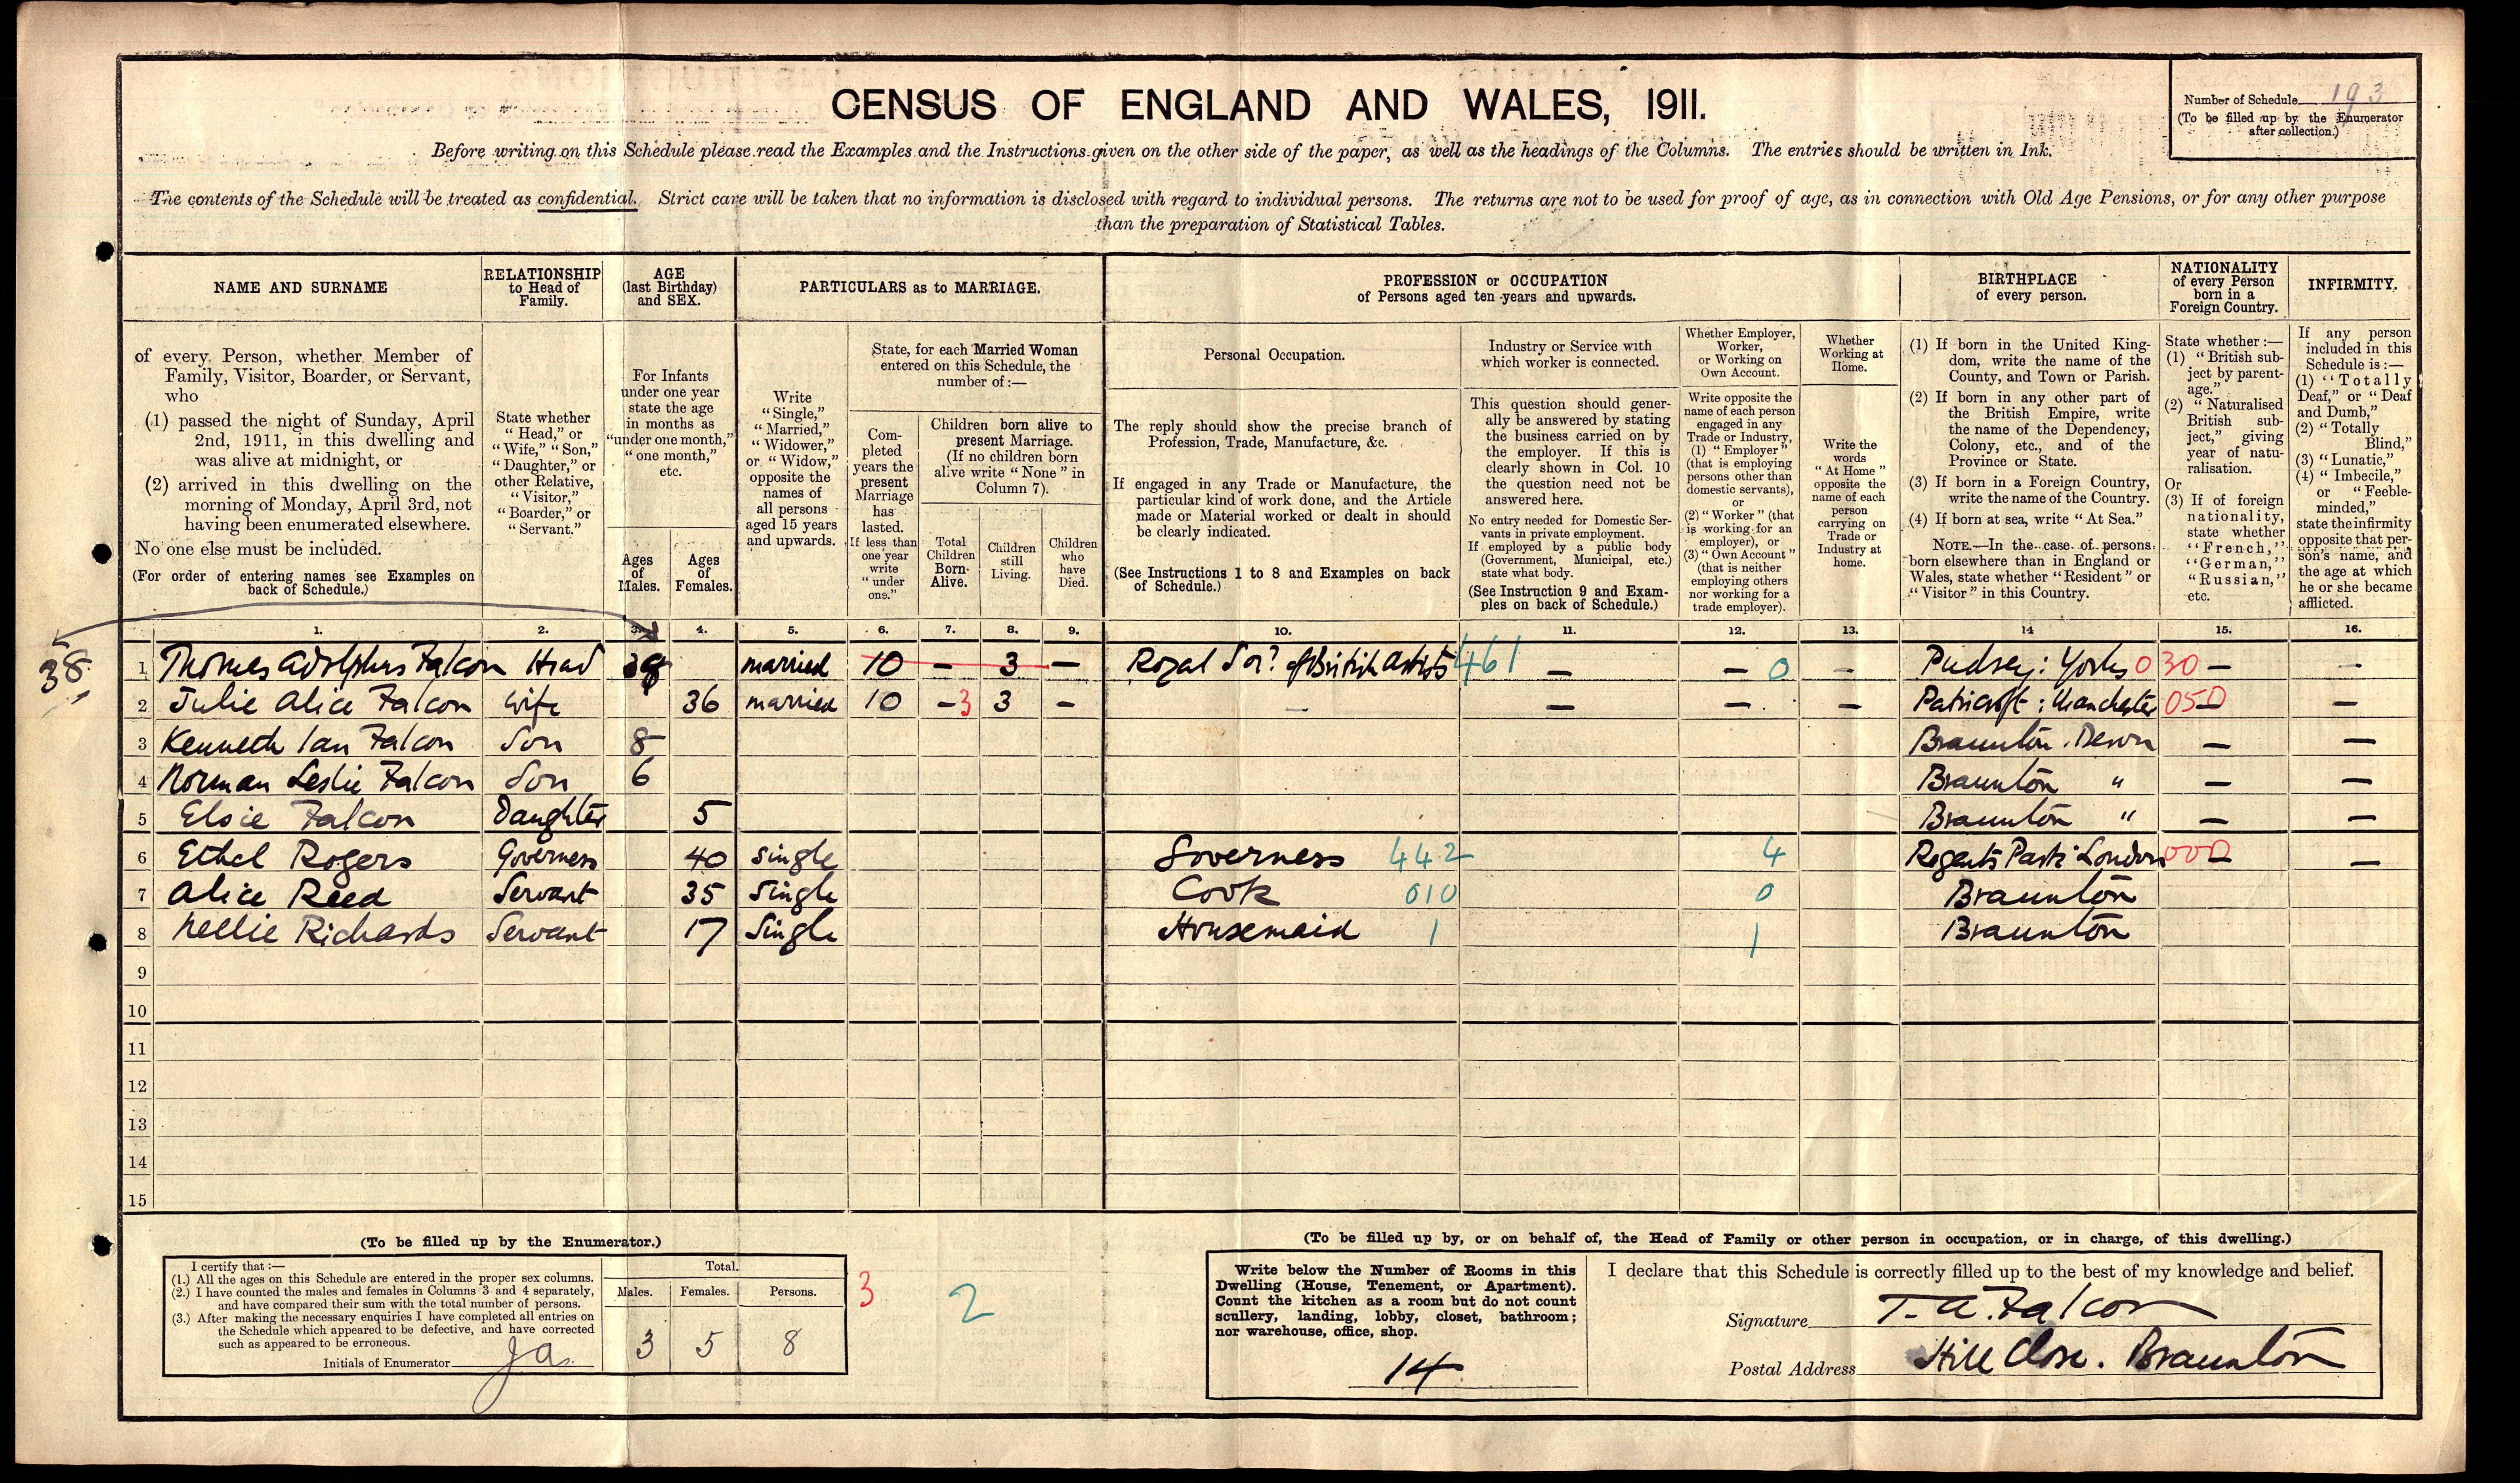 CENSUS OF ENGLAND AND WALES, 1911.
Number of Schedule 193
(To be filled up by the Enumerator
after collection.)
Before writing on this Schedule please read the Examples and the Instructions given on the other side of the paper, as well as the headings of the Columns. The entries should be written in Ink.
The contents of the Schedule will be treated as confidential. Strict care will be taken that no information is disclosed with regard to individual persons. The returns are not to be used for proof of age, as in connection with Old Age Pensions, or for any other purpose
than the preparation of Statistical Tables.
NAME AND SURNAME
of every Person, whether Member of
Family, Visitor, Boarder, or Servant,
who
(1) passed the night of Sunday, April
2nd, 1911, in this dwelling and
was alive at midnight, or
(2) arrived in this dwelling on the
morning of Monday, April 3rd, not
having been enumerated elsewhere.
No one else must be included.
(For order of entering names see Examples on
back of Schedule.)
RELATIONSHIP
to Head of
Family.
State whether
"Head," or
"Wife," "Son,"
"Daughter," or
other Relative,
"Visitor,"
"Boarder," or
"Servant."
AGE
(last Birthday)
and SEX.
For Infants
under one year
state the age
in months as
"under one month,"
"one month,"
etc.
Ages
of
Males.
Ages
of
Females.
PARTICULARS as to MARRIAGE.
Write
"Single,"
"Married,"
"Widower,"
or "Widow,"
opposite the
names of
all persons
aged 15 years
and upwards.
State, for each Married Woman
entered on this Schedule, the
number of :—
Com-
pleted
years the
present
Marriage
has
lasted.
If less than
one year
write
"under
one."
Children born alive to
present Marriage.
(If no children born
alive write "None" in
Column 7).
Total
Children
Born
Alive.
Children
still
Living.
Children
who
have
Died.
PROFESSION or OCCUPATION
of Persons aged ten years and upwards.
Personal Occupation.
The reply should show the precise branch of
Profession, Trade, Manufacture, &c.
If engaged in any Trade or Manufacture, the
particular kind of work done, and the Article
made or Material worked or dealt in should
be clearly indicated.
(See Instructions 1 to 8 and Examples on back
of Schedule.)
Industry or Service with
which worker is connected.
This question should gener-
ally be answered by stating
the business carried on by
the employer. If this is
clearly shown in Col. 10
the question need not be
answered here.
No entry needed for Domestic Ser-
vants in private employment.
If employed by a public body
(Government, Municipal, etc.)
state what body.
(See Instruction 9 and Exam-
ples on back of Schedule.)
Whether Employer,
Worker,
or Working on
Own Account.
Write opposite the
name of each person
engaged in any
Trade or Industry,
(1) "Employer"
(that is employing
persons other than
domestic servants),
or
(2) "Worker" (that
is working for an
employer), or
(3) "Own Account"
(that is neither
employing others
nor working for a
trade employer).
Whether
Working at
Home.
Write the
words
"At Home"
opposite the
name of each
person
carrying on
Trade or
Industry at
home.
BIRTHPLACE
of every person.
(1) If born in the United King-
dom, write the name of the
County, and Town or Parish.
(2) If born in any other part of
the British Empire, write
the name of the Dependency,
Colony, etc., and of the
Province or State.
(3) If born in a Foreign Country,
write the name of the Country.
(4) If born at sea, write "At Sea."
NOTE.—In the case of persons
born elsewhere than in England or
Wales, state whether "Resident" or
"Visitor" in this Country.
NATIONALITY
of every Person
born in a
Foreign Country.
State whether :—
(1) "British sub-
ject by parent-
age."
(2) "Naturalised
British sub-
ject," giving
year of natu-
ralisation.
Or
(3) If of foreign
nationality,
state whether
"French,"
"German,"
"Russian,"
etc.
INFIRMITY.
If any person
included in this
Schedule is :—
(1) "Totally
Deaf," or "Deaf
and Dumb,"
(2) "Totally
Blind,"
(3) "Lunatic,"
(4) "Imbecile,"
or "Feeble-
minded,"
state the infirmity
opposite that per-
son's name, and
the age at which
he or she became
afflicted.
1. 2. 3. 4. 5. 6. 7. 8. 9. 10. 11. 12. 13. 14 15. 16.
38
1 Thomas Adolphus Falcon Head 38 married 10 — 3 — Royal Soc? of British Artists 461 — — 0 — Pudsey: Yorks 030 — —
2 Julie Alice Falcon Wife 36 married 10 — 3 3 — — — — — Patricroft: Manchester 050 — —
3 Kenneth Ian Falcon Son 8 Braunton. Devon — —
4 Norman Leslie Falcon Son 6 Braunton " — —
5 Elsie Falcon Daughter 5 Braunton " — —
6 Ethel Rogers Governess 40 single Governess 442 4 Regents Park London 000 — —
7 Alice Reed Servant 35 Single Cook 010 0 Braunton
8 Nellie Richards Servant 17 Single Housemaid 1 1 Braunton
9
10
11
12
13
14
15
(To be filled up by the Enumerator.)
I certify that :—
(1.) All the ages on this Schedule are entered in the proper sex columns.
(2.) I have counted the males and females in Columns 3 and 4 separately,
and have compared their sum with the total number of persons.
(3.) After making the necessary enquiries I have completed all entries on
the Schedule which appeared to be defective, and have corrected
such as appeared to be erroneous.
Initials of Enumerator JA.
Total.
Males. Females. Persons.
3 5 8
3 2
(To be filled up by, or on behalf of, the Head of Family or other person in occupation, or in charge, of this dwelling.)
Write below the Number of Rooms in this
Dwelling (House, Tenement, or Apartment).
Count the kitchen as a room but do not count
scullery, landing, lobby, closet, bathroom;
nor warehouse, office, shop.
14
I declare that this Schedule is correctly filled up to the best of my knowledge and belief.
Signature T. A. Falcon
Postal Address Hill Close. Braunton